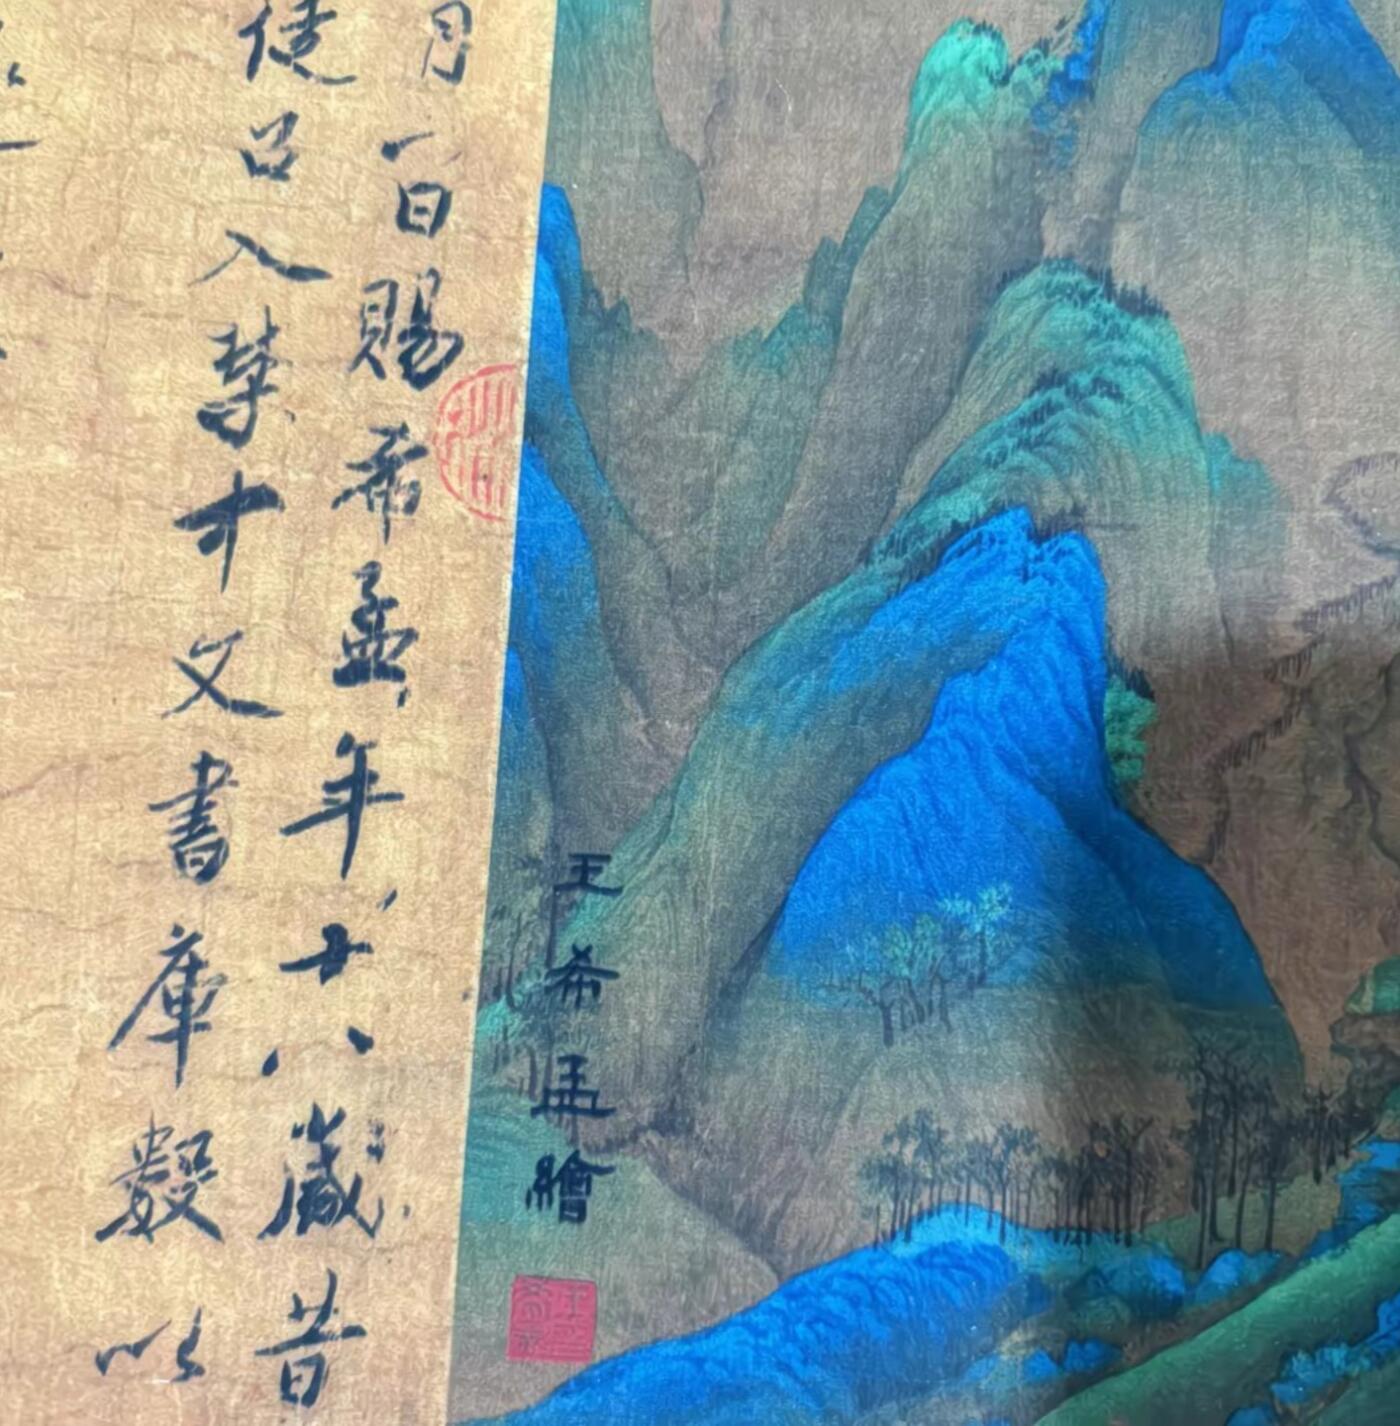 王希孟繪
月一日賜希孟年十八歲昔
徒召入禁中文書庫數以